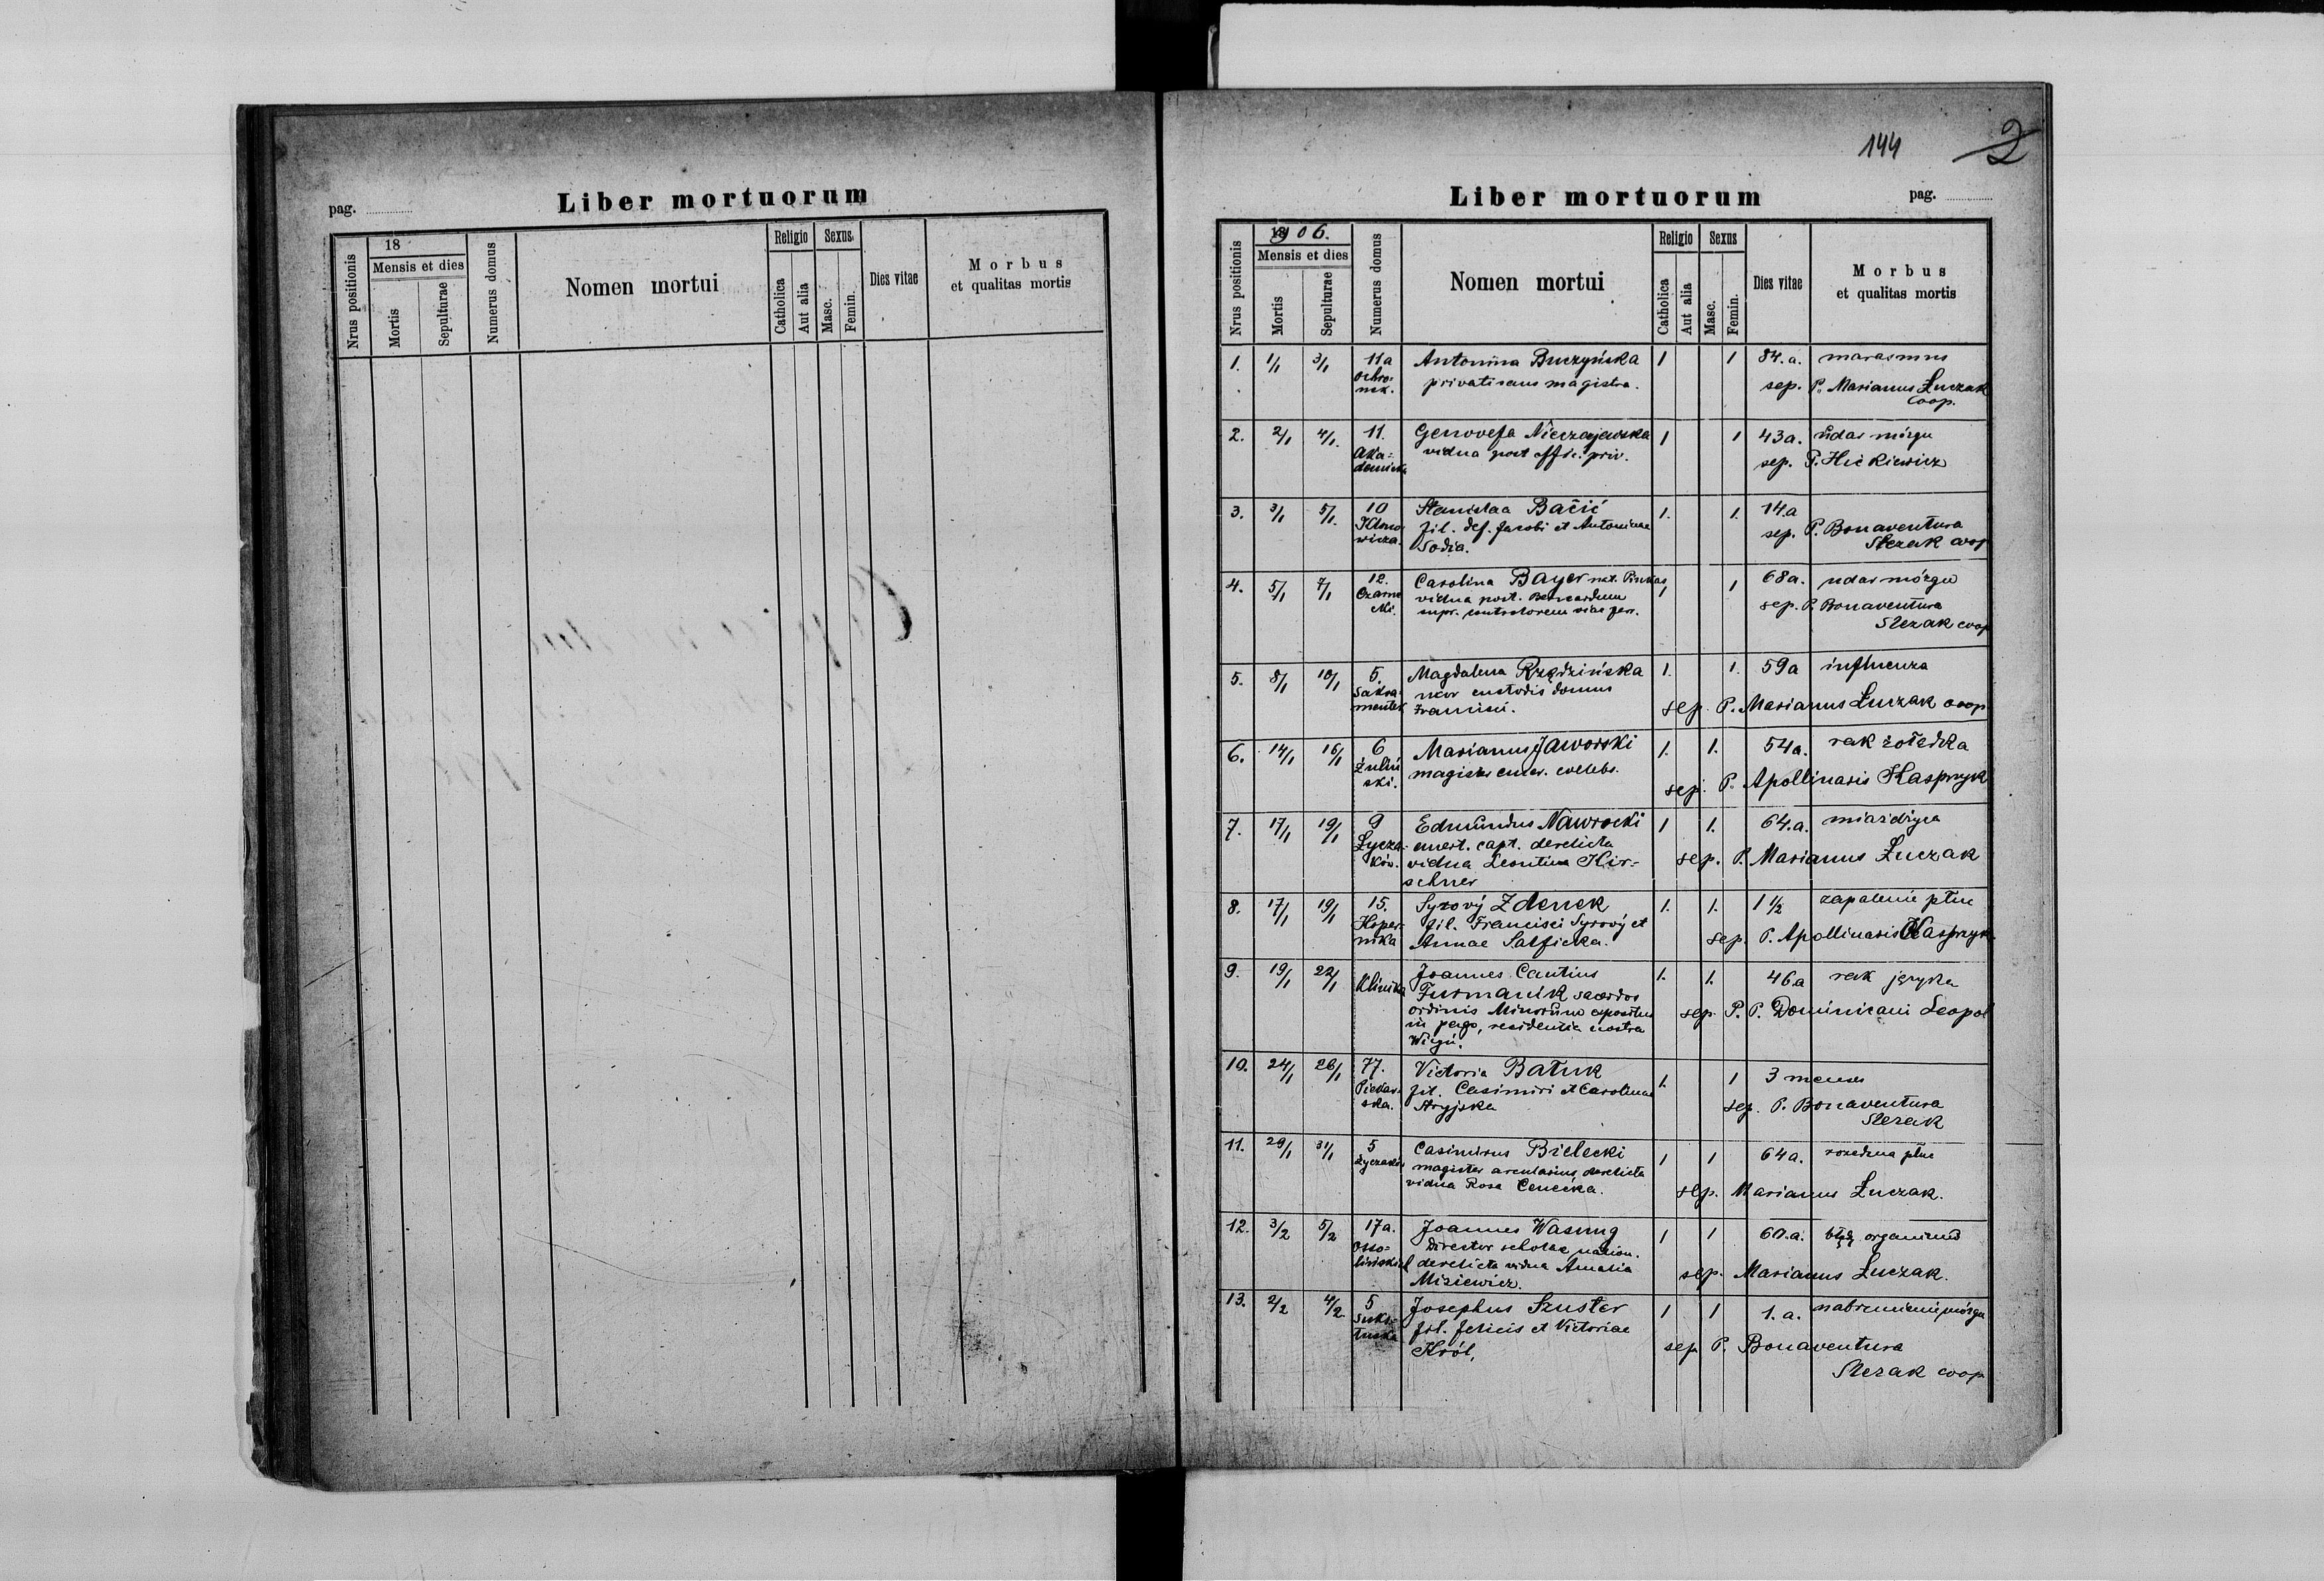 pag.
Liber mortuorum
Nrus positionis
18
Mensis et dies
Mortis
Sepulturae
Numerus domus
Nomen mortui
Religio
Catholica
Aut alia
Sexus
Masc.
Femin.
Dies vitae
Morbus
et qualitas mortis
144
2
Liber mortuorum
pag.
Nrus positionis
1906.
Mensis et dies
Mortis
Sepulturae
Numerus domus
Nomen mortui
Religio
Catholica
Aut alia
Sexus
Masc.
Femin.
Dies vitae
Morbus
et qualitas mortis
1. 1/1 3/1 11a Antonina Buczyńska 1 1 84.a. marasmus
ochro=
nek. privatizans magistra. sep. P. Marianus Łuczak
Coop.
2. 2/1 4/1. 11. Genovefa Nieczajewska 1 1 43a. udar mózgu
Aka= vidua post offic. priv.
demicka sep. P.
3. 3/1 5/1. 10 Stanislaa Bačić 1. 1. 14a
Klono
wicza. fil. def. Jacobi et Antoninae sep. P. Bonaventura
Sodia. Slezak coop
4. 5/1 7/1 12. Carolina Bayer nat. 1 1 68a. udar mózgu
Czarne
cki. vidua post. Bernardum sep. P. Bonaventura
supr. controlorem viae ferr. Slezak coop
5. 8/1 10/1 5. Magdalena Rządzińska 1. 1. 59a influenza
Sakra
mentek uxor custodis domus
Francisci. sep. P. Marianus Łuczak coop
6. 14/1 16/1 6 Marianus Jaworski 1. 1. 54a. rak żołądka
Żuliń
ski. magister emer. coelebs. sep. P. Apollinaris Kasprzyk
7. 17/1 19/1 9 Edmundus Nawrocki 1 1. 64.a. miażdżyca
Łycza-
ków. emerit. capt. derelicta
vidua Leontina Kir= sep. P. Marianus Łuczak
schner
8. 17/1 19/1 15. Syrový Zdenek 1. 1. 1 1/2 zapalenie płuc
Koper-
nika fil. Francisci Syrový et
Annae Salficka. sep. P. Apollinaris Kasprzyk
9. 19/1 22/1 Klinika Joannes Cantius 1. 1. 46a rak języka
Furmanik sacerdos
ordinis Minorum expositus sep. P. P. Dominicani Leopol
in pago, residentia nostra
10. 24/1 26/1 77. Victoria Batuk 1. 1 3 menses
Piekar-
ska. fil. Casimiri et Carolinae sep. P. Bonaventura
Stryjska Slezak
11. 29/1 31/1 5 Casimirus Bielecki 1 1 64a. rozedma płuc
Łyczaków magister arcularius, derelicta
vidua Rosa sep. Marianus Łuczak.
12. 3/2 5/2 17a. Joannes Wasung 1 1 60.a. organiczna
Osso=
lińskich Director scholae nation.
derelicta vidua Amalia sep. Marianus Łuczak.
Misiewicz.
13. 2/2 4/2. 5 Josephus Szuster 1 1 1.a. nabrzmienie mózgu
fil. Felicis et Victoriae
Król, sep. P. Bonaventura
Slezak coop